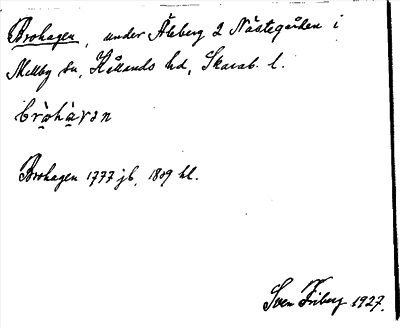 Brohagen, under Åleberg 2 Nästegården i
Mellby sn, Kållands hd, Skarab. l.
bròhàvan
Brohagen 1777 jb, 1809 hl.
Sven Friberg 1927.